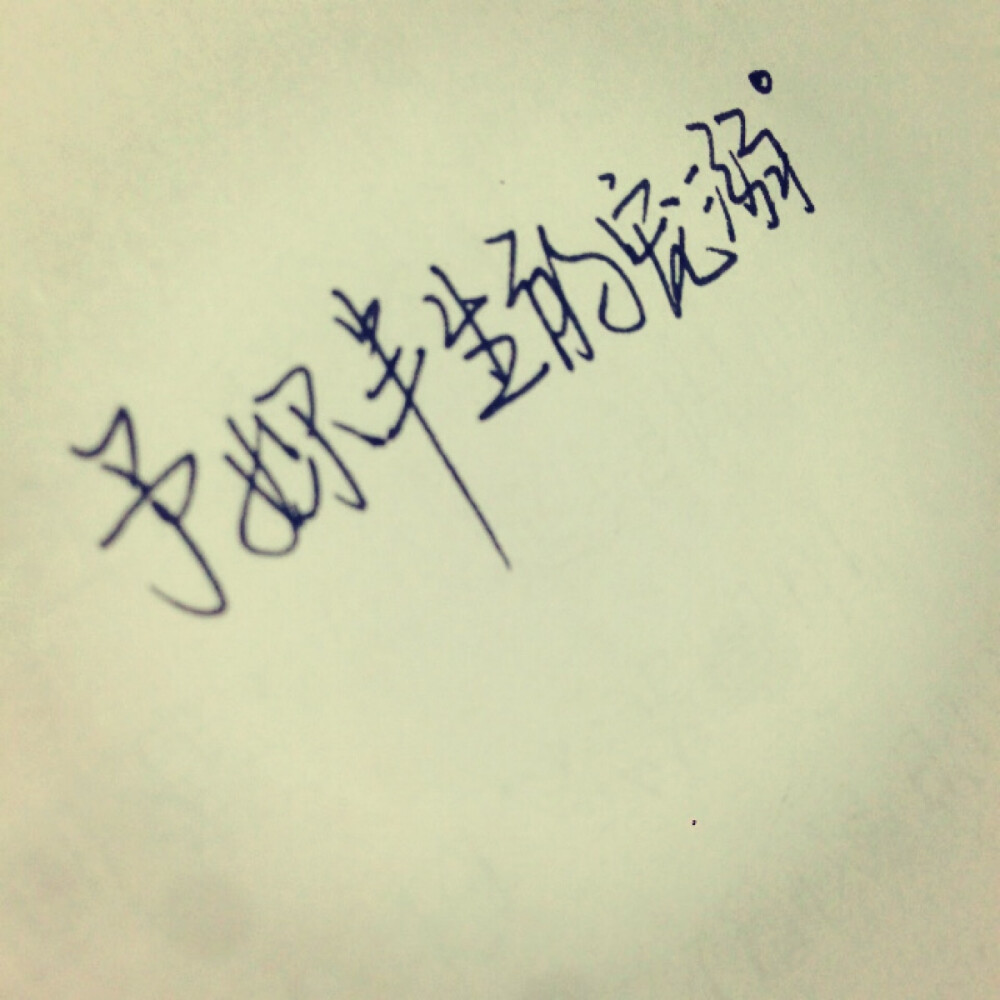 予妳半生的宠溺。